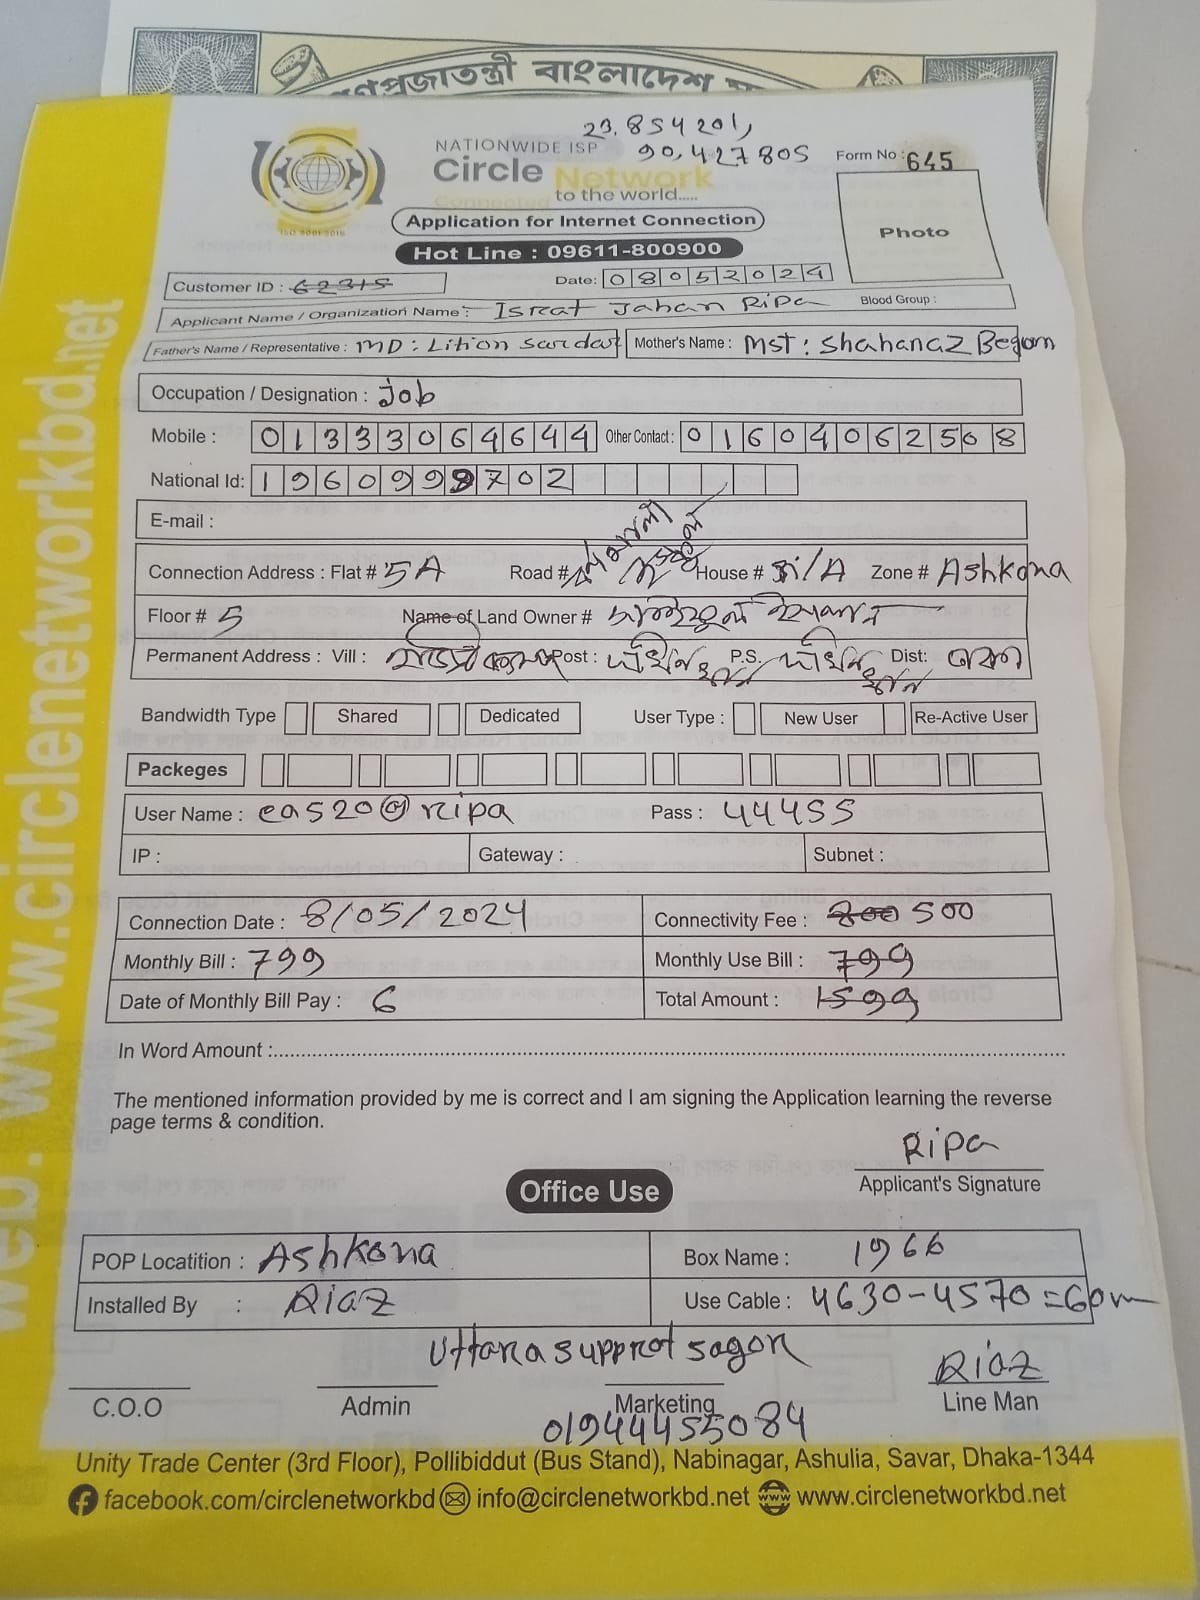 গণপ্রজাতন্ত্রী বাংলাদেশ
23.854201,
90.427805
NATIONWIDE ISP
Circle Network
to the world.....
Form No : 645
Photo
ISO 9001:2015
Application for Internet Connection
Hot Line : 09611-800900
Customer ID : 62315
Date: 08052024
Applicant Name / Organization Name : Israt Jahan Ripa Blood Group :
Father's Name / Representative : MD: Lition Sardar Mother's Name : Mst: Shahanaz Begom
Occupation / Designation : Job
Mobile : 01333064644 Other Contact : 01604062508
National Id: 1960999702
E-mail :
Connection Address : Flat # 5A Road # House # Zone # Ashkona
Floor # 5 Name of Land Owner #
Permanent Address : Vill : Post : P.S. Dist: ঢাকা
Bandwidth Type Shared Dedicated User Type : New User Re-Active User
Packeges
User Name : cas20@ripa Pass : 44455
IP : Gateway : Subnet :
Connection Date : 8/05/2024 Connectivity Fee : 800 500
Monthly Bill : 799 Monthly Use Bill : 799
Date of Monthly Bill Pay : 6 Total Amount : 1599
In Word Amount :
The mentioned information provided by me is correct and I am signing the Application learning the reverse
page terms & condition.
Ripa
Applicant's Signature
Office Use
POP Locatition : Ashkona Box Name : 1966
Installed By : Riaz Use Cable : 4630-4570=60m
Uttara supprot sagor
Riaz
C.O.O Admin Marketing Line Man
01944455084
Unity Trade Center (3rd Floor), Pollibiddut (Bus Stand), Nabinagar, Ashulia, Savar, Dhaka-1344
facebook.com/circlenetworkbd info@circlenetworkbd.net www.circlenetworkbd.net
web: www.circlenetworkbd.net